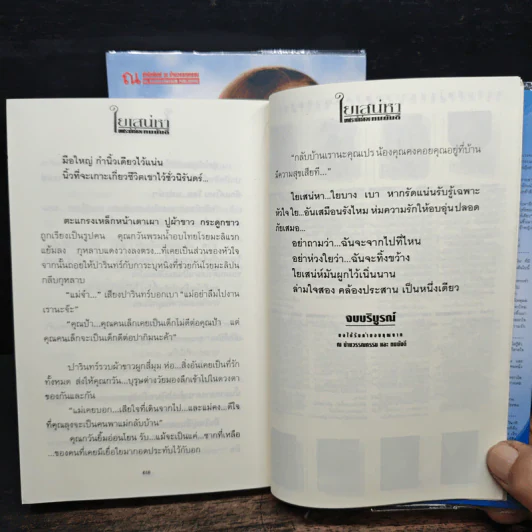 ณ
ใยเสน่หา
มือใหญ่ กำนิ้วเดียวไว้แน่น
นิ้วที่จะเกาะเกี่ยวชีวิตเขาไว้ชั่วนิรันดร์...
ตะแกรงเหล็กหน้าเตาเผา ปูผ้าขาว กระดูกขาว
ถูกเรียงเป็นรูปคน คุณกวินพรมน้ำอบไทยโรยมะลิแรก
แย้มลง กุหลาบแดงวางลงตรง...ที่เคยเป็นส่วนของหัวใจ
จากนั้นถอยให้ปารินทร์กับการะบุหนิงที่ช่วยกันโรยมะลิปน
กลีบกุหลาบ
"แม่จ๋า..." เสียงปารินทร์บอกเบา "แม่อย่าลืมไปงาน
เรานะจ๊ะ"
"คุณป้า...คุณคนเล็กเคยเป็นเด็กไม่ดีต่อคุณป้า แต่
คุณคนเล็กจะเป็นเด็กดีต่อปากิมนะค้า"
ปารินทร์รวบผ้าขาวผูกสี่มุม ห่อ...สิ่งอันเคยเป็นที่รัก
ทั้งหมด ส่งให้คุณกวิน...บุรุษต่างวัยมองลึกเข้าไปในดวงตา
ของกันและกัน
"แม่เคยบอก...เสียใจที่เดินจากไป...และแม่คง...ดีใจ
ที่คุณลุงจะเป็นคนพาแม่กลับบ้าน"
คุณกวินยิ้มอ่อนโยน รับ...แม้จะเป็นแค่...ซากที่เหลือ
...ของคนที่เคยมีเยื่อใยมากอดประทับไว้กับอก
ใยเสน่หา
"กลับบ้านเรานะคุณเปร น้องคุณคงคอยคุณอยู่ที่บ้าน
มีความสุขเสียที..."
ใยเสน่หา...ใยบาง เบา หากรัดแน่นรับรู้เฉพาะ
หัวใจ ใย...อันเสมือนรังไหม ห่มความรักให้อบอุ่นปลอด
ภัยเสมอ...
อย่าถามว่า...ฉันจะจากไปที่ไหน
อย่าห่วงใยว่า...ฉันจะทิ้งขว้าง
ใยเสน่ห์มันผูกไว้เนิ่นนาน
ล่ามใจสอง คล้องประสาน เป็นหนึ่งเดียว
จบบริบูรณ์
ณ บ้านวรรณกรรม และ